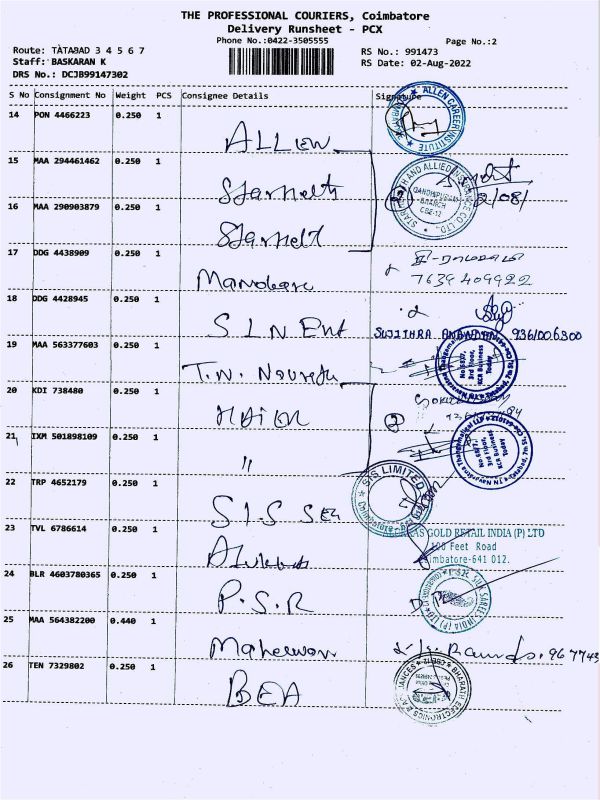 THE PROFESSIONAL COURIERS, Coimbatore
Delivery Runsheet - PCX
Phone No.:0422-3505555
Page No.:2
Route: TATABAD 3 4 5 6 7
RS No.: 991473
Staff: BASKARAN K
RS Date: 02-Aug-2022
DRS No.: DCJB99147302
S No Consignment No Weight PCS Consignee Details Signature
14 PON 4466223 0.250 1 ALLEN
ALLEN CAREER INSTITUTE
15 MAA 294461462 0.250 1
STAR HEALTH AND ALLIED INSURANCE CO LTD.
GANDHIPURAM
BRANCH
CBE-12
16 MAA 290903879 0.250 1
17 DDG 4438909 0.250 1
7639409922
18 DDG 4428945 0.250 1 S I N Ent
SUJITHRA 9361006300
19 MAA 563377603 0.250 1 T.N.
3rd Floor,
KCR Business
Today
20 KDI 738480 0.250 1
21 IXM 501898109 0.250 1 "
3rd Floor,
KCR Business
Today
22 TRP 4652179 0.250 1 S.I.S
SIS LIMITED
Coimbatore
23 TVL 6786614 0.250 1
GOLD RETAIL INDIA (P) LTD
100 Feet Road
mbatore-641 012.
24 BLR 4603780365 0.250 1 P.S.R
SILK SAREES INDIA (P) LTD
25 MAA 564382200 0.440 1
967743
26 TEN 7329802 0.250 1 BEA
BHARATH ELECTRONICS & APPLIANCES